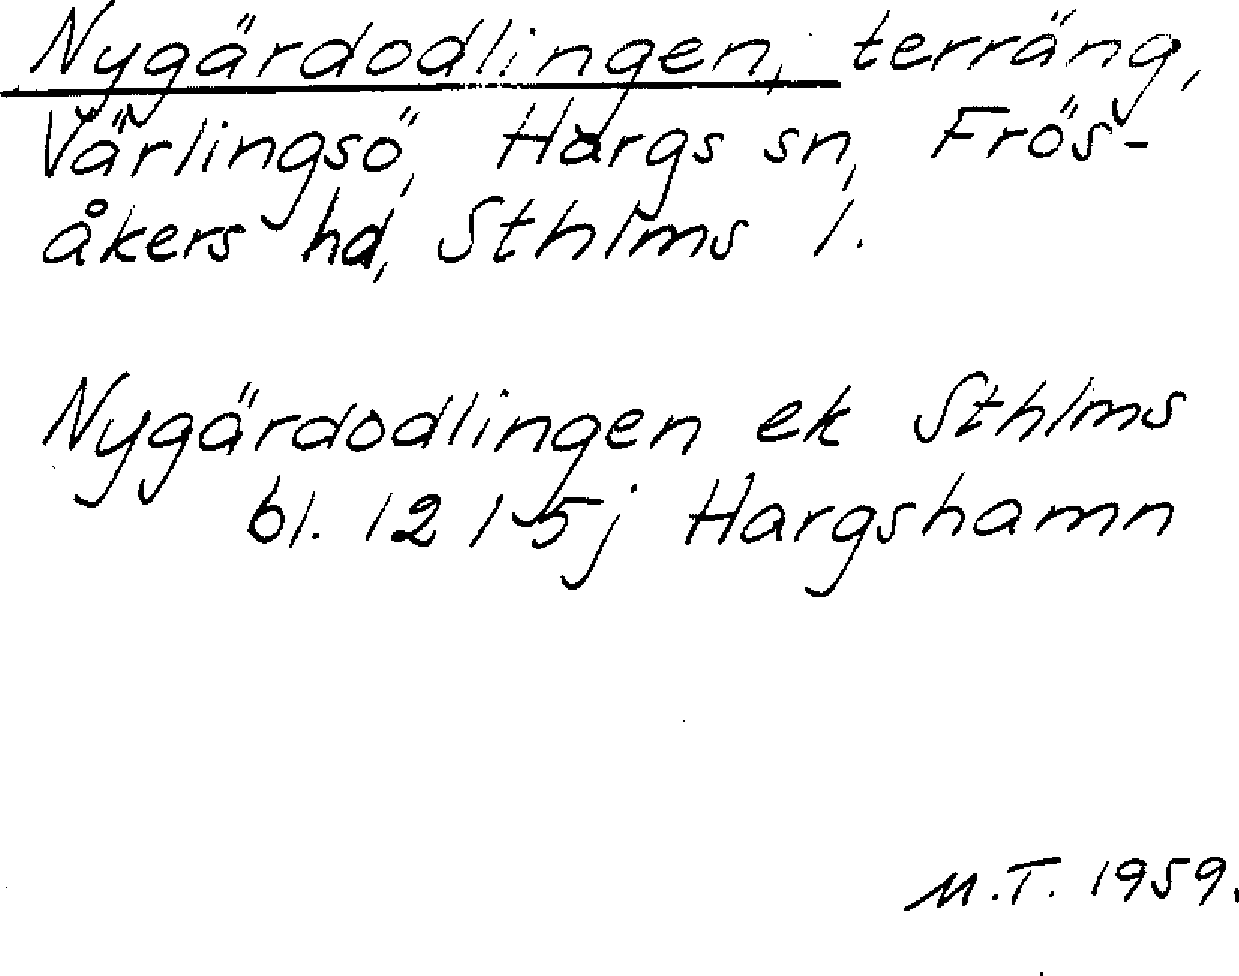 Nygärdodlingen, terräng,
Värlingsö, Hargs sn, Frös-
åkers hd, Sthlms l.
Nygärdodlingen ek Sthlms
bl. 12 I 5j Hargshamn
M.T. 1959.